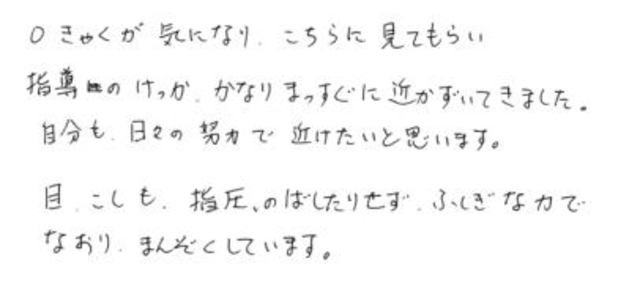 O きゃくが 気になり、こちらに 見てもらい
指導の けっか、かなり まっすぐに 近かずいてきました。
自分も、日々の 努力で 近けたいと思います。
目、こしも、指圧、のばしたりせず、ふしぎな力で
なおり、まんぞくしています。